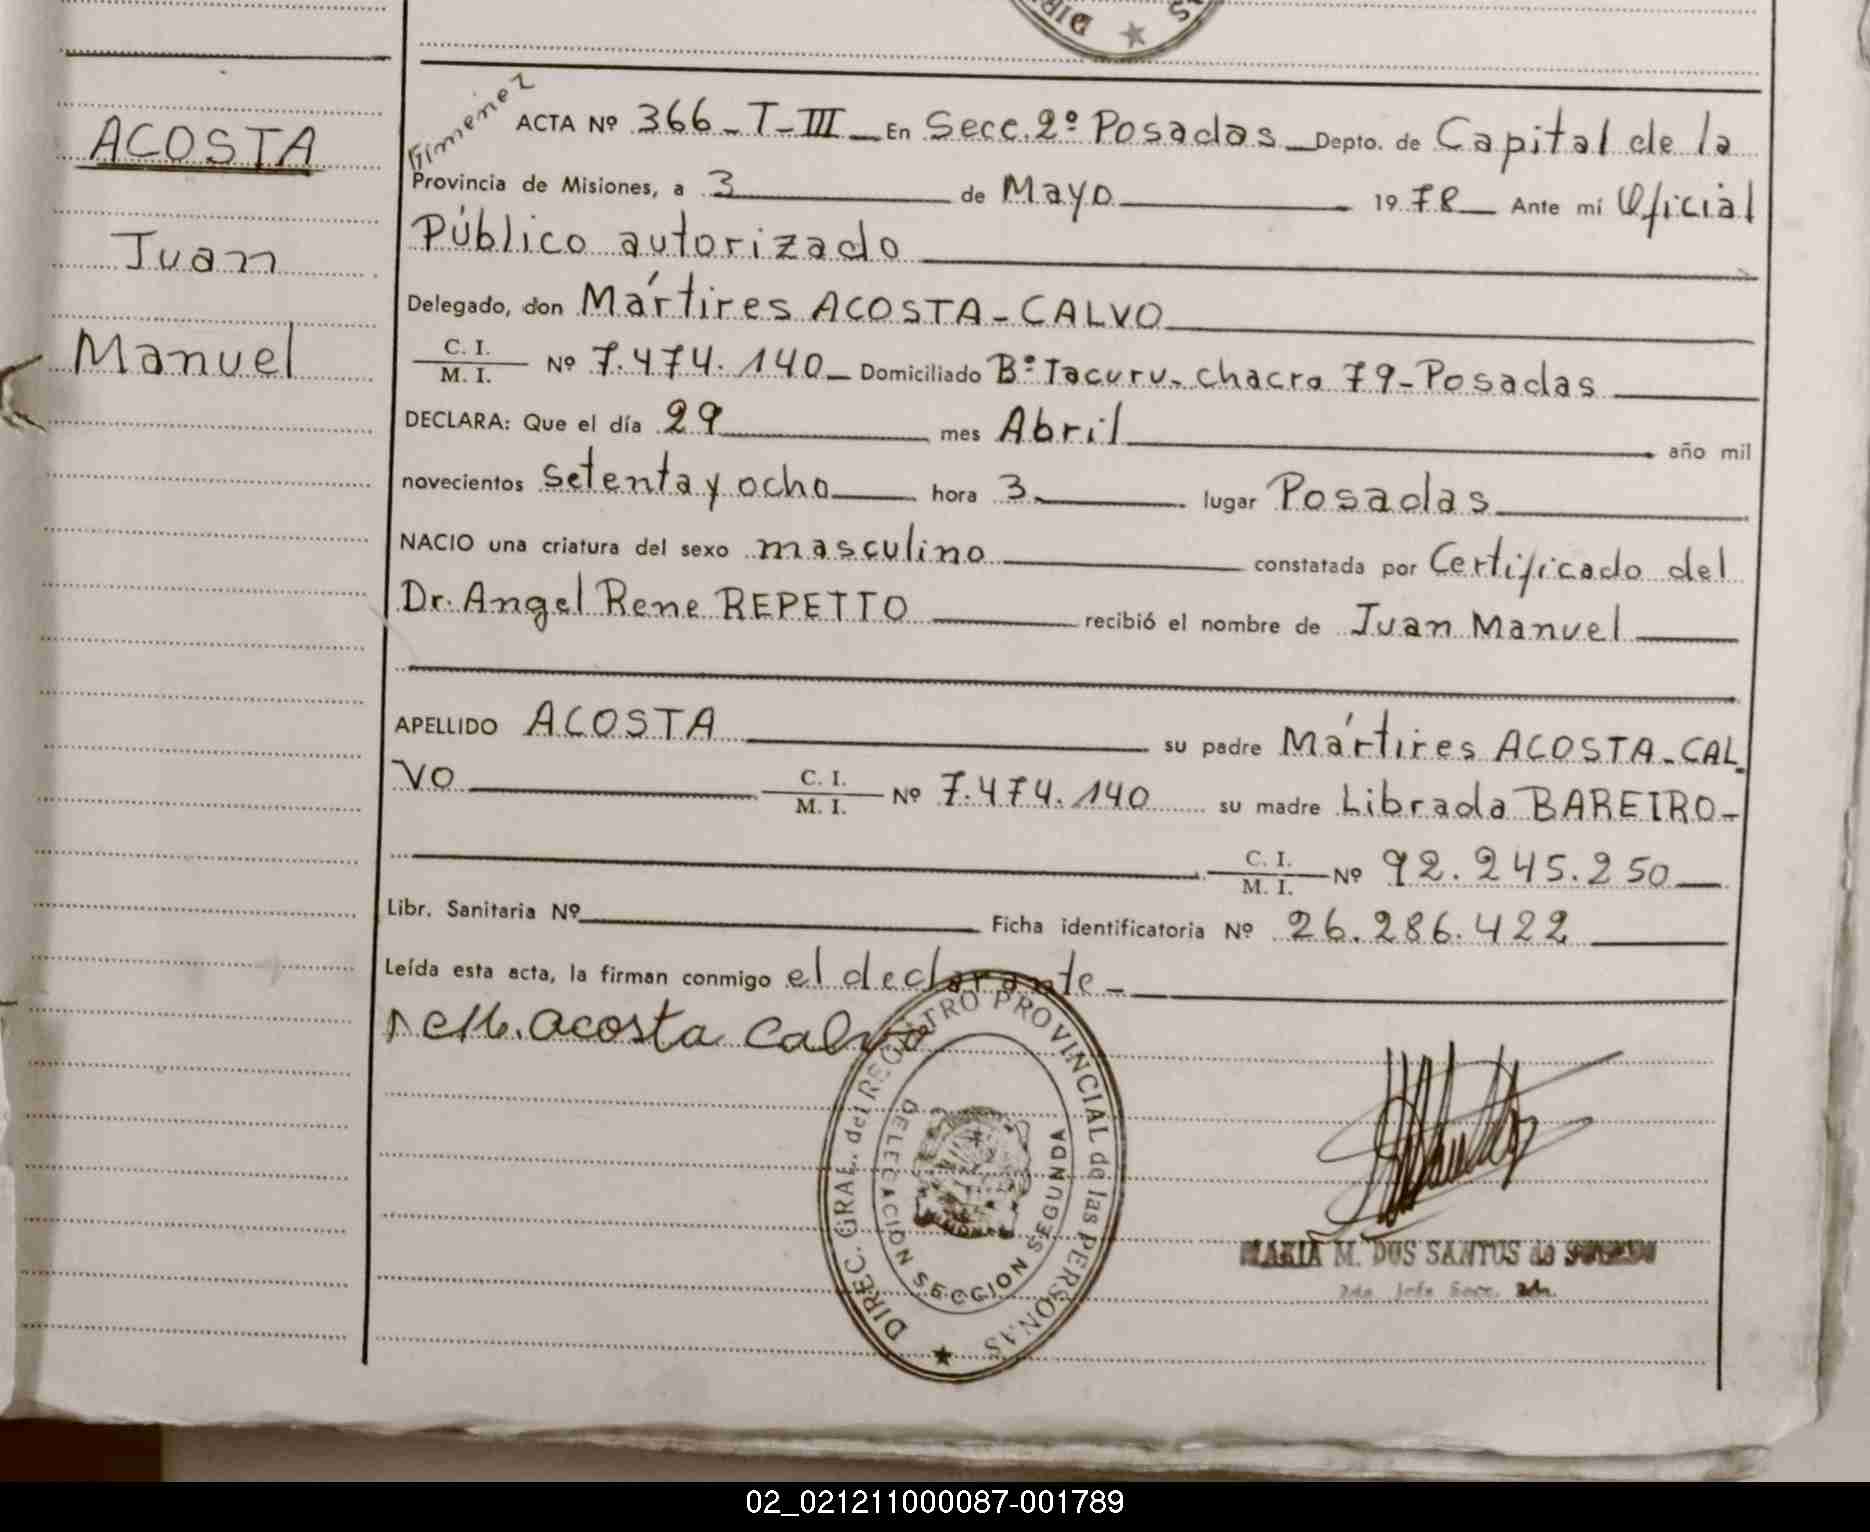 DIR
S
ACOSTA
Juan
Manuel
Gimenez
ACTA Nº 366-T-III- En Secc. 2º Posadas Depto. de Capital de la
Provincia de Misiones, a 3 de Mayo 1978 Ante mí Oficial
Público autorizado
Delegado, don Mártires ACOSTA-CALVO
C. I.
M. I. Nº 7.474.140 Domiciliado Bº Tacuru- chacra 79-Posadas
DECLARA: Que el día 29 mes Abril año mil
novecientos setenta y ocho hora 3 lugar Posadas
NACIO una criatura del sexo masculino constatada por Certificado del
Dr. Angel Rene REPETTO recibió el nombre de Juan Manuel
APELLIDO ACOSTA su padre Mártires ACOSTA-CAL
VO C. I.
M. I. Nº 7.474.140 su madre Librada BAREIRO-
C. I.
M. I. Nº 92.245.250
Libr. Sanitaria Nº Ficha identificatoria Nº 26.286.422
Leída esta acta, la firman conmigo el declarante-
M. acosta calvo
DIREC. GRAL. del REGISTRO PROVINCIAL de las PERSONAS
DELEGACION SECCION SEGUNDA
MISIONES
MARIA M. DOS SANTOS de
2da. Jefe Secc. 2da.
02_021211000087-001789